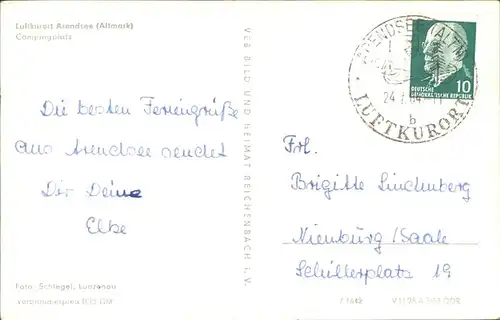 Luftkurort Arendsee (Altmark)
Campingplatz
Die besten Feriengrüße
aus Arendsee sendet
Dir Deine
Elke
Foto: Schlegel, Lunzenau
VEB BILD UND HEIMAT REICHENBACH i. V.
ARENDSEE (ALTM
24.7.64-11
b
LUFTKURORT
DEUTSCHE
DEMOKRATISCHE REPUBLIK
10
Frl.
Brigitte Lindenberg
Nienburg/Saale
Schillerplatz 19